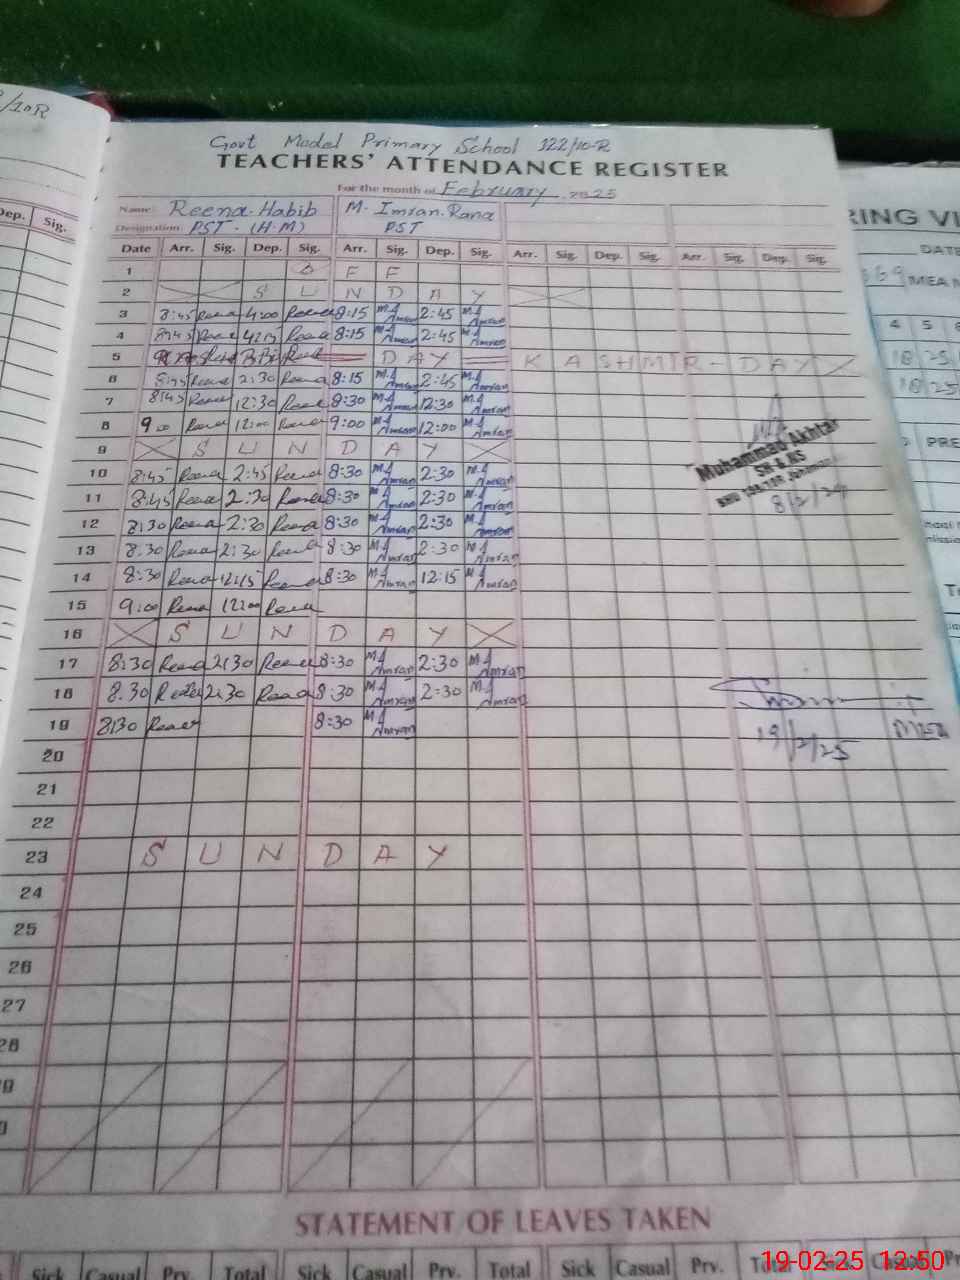 /10R
Govt Model Primary School 122/10-R
TEACHERS' ATTENDANCE REGISTER
For the month of February 2025
Name: Reena Habib M. Imran Rana
Designation: PST - (H.M) PST
Dep. Sig.
Date Arr. Sig. Dep. Sig. Arr. Sig. Dep. Sig. Arr. Sig. Dep. Sig. Arr. Sig. Dep. Sig.
1 O F F
2 S U N D A Y
3 8:45 Reena 4:00 Reena 8:15 M.I Amran 2:45 M.I Amran
4 8:45 Reena 4:15 Reena 8:15 M.I Amran 2:45 M.I Amran
5 DAY KASHMIR-DAY
6 8:45 Reena 2:30 Reena 8:15 M.I Amran 2:45 M.I Amran
7 8:45 Reena 12:30 Reena 8:30 M.I Amran 12:30 M.I Amran
8 9:00 Reena 12:00 Reena 9:00 M.I Amran 12:00 M.I Amran
9 S U N D A Y
10 8:45 Reena 2:45 Reena 8:30 M.I Amran 2:30 M.I Amran
11 8:45 Reena 2:30 Reena 8:30 M.I Amran 2:30 M.I Amran
12 8:30 Reena 2:30 Reena 8:30 M.I Amran 2:30 M.I Amran
13 8:30 Reena 2:30 Reena 8:30 M.I Amran 2:30 M.I Amran
14 8:30 Reena 12:15 Reena 8:30 M.I Amran 12:15 M.I Amran
15 9:00 Reena 12:00 Reena
16 S U N D A Y
17 8:30 Reena 2:30 Reena 8:30 M.I Amran 2:30 M.I Amran
18 8:30 Reena 2:30 Reena 8:30 M.I Amran 2:30 M.I Amran
19 8:30 Reena 8:30 M.I Amran
20
21
22
23 S U N D A Y
24
25
26
27
28
Muhammad Akhtar
19/2/25
MEA
RING VI
DATE
MEA
4 5 6
PRE
STATEMENT OF LEAVES TAKEN
Sick Casual Prv. Total Sick Casual Prv. Total Sick Casual Prv. Total Casual
19-02-25 12:50